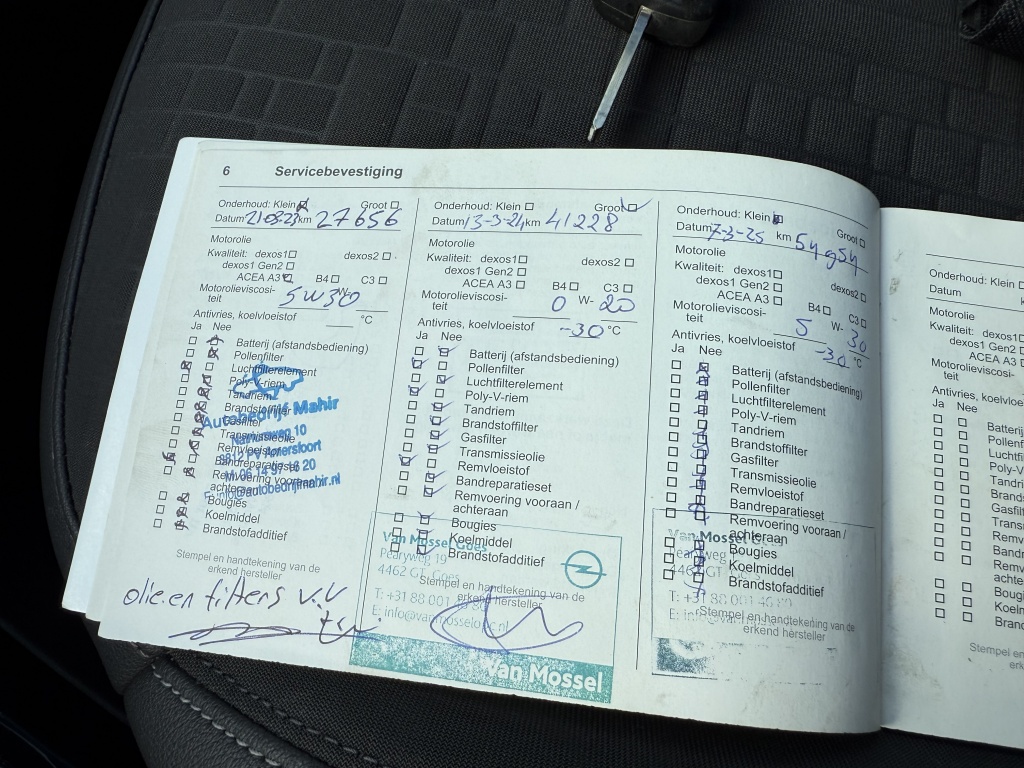 6 Servicebevestiging
Onderhoud: Klein Groot
Datum 21-03-23 km 27656
Motorolie
Kwaliteit: dexos1 dexos2
dexos1 Gen2
ACEA A3 B4 C3
Motorolieviscosi-
teit 5W30
W-
Antivries, koelvloeistof °C
Ja Nee
Batterij (afstandsbediening)
Pollenfilter
Luchtfilterelement
Poly-V-riem
Tandriem
Brandstoffilter
Gasfilter
Transmissieolie
Remvloeistof
Bandreparatieset
Remvoering vooraan /
achteraan
Bougies
Koelmiddel
Brandstofadditief
Autobedrijf Mahir
3812 PV Amersloort
M: 06 14 97 16 20
E: info@autobedrijfmahir.nl
Stempel en handtekening van de
erkend hersteller
olie.en filters v.v
Onderhoud: Klein Groot
Datum 13-3-24 km 41228
Motorolie
Kwaliteit: dexos1 dexos2
dexos1 Gen2
ACEA A3 B4 C3
Motorolieviscosi-
teit 0 W- 20
Antivries, koelvloeistof -30 °C
Ja Nee
Batterij (afstandsbediening)
Pollenfilter
Luchtfilterelement
Poly-V-riem
Tandriem
Brandstoffilter
Gasfilter
Transmissieolie
Remvloeistof
Bandreparatieset
Remvoering vooraan /
achteraan
Bougies
Koelmiddel
Brandstofadditief
Van Mossel Goes
Pearyweg 19
4462 GT Goes
T: +31 88 001
Stempel en handtekening van de
erkend hersteller
Van Mossel
Onderhoud: Klein Groot
Datum 7-3-25 km 54954
Motorolie
Kwaliteit: dexos1 dexos2
dexos1 Gen2
ACEA A3 B4 C3
Motorolieviscosi-
teit 5 W- 30
Antivries, koelvloeistof -30 °C
Ja Nee
Batterij (afstandsbediening)
Pollenfilter
Luchtfilterelement
Poly-V-riem
Tandriem
Brandstoffilter
Gasfilter
Transmissieolie
Remvloeistof
Bandreparatieset
Remvoering vooraan /
achteraan
Bougies
Koelmiddel
Brandstofadditief
Van Mossel
4462 GT
T: +31 88 001
Stempel en handtekening van de
erkend hersteller
Onderhoud: Klein
Datum
Motorolie
Kwaliteit: dexos1
dexos1 Gen2
ACEA A3
Motorolieviscosi-
teit
Antivries, koelvloe
Ja Nee
Batterij
Pollenf
Luchtfi
Poly-V
Tandri
Brands
Gasfilt
Transm
Remvl
Bandr
Remv
achte
Boug
Koeln
Branc
Stempel en
erke